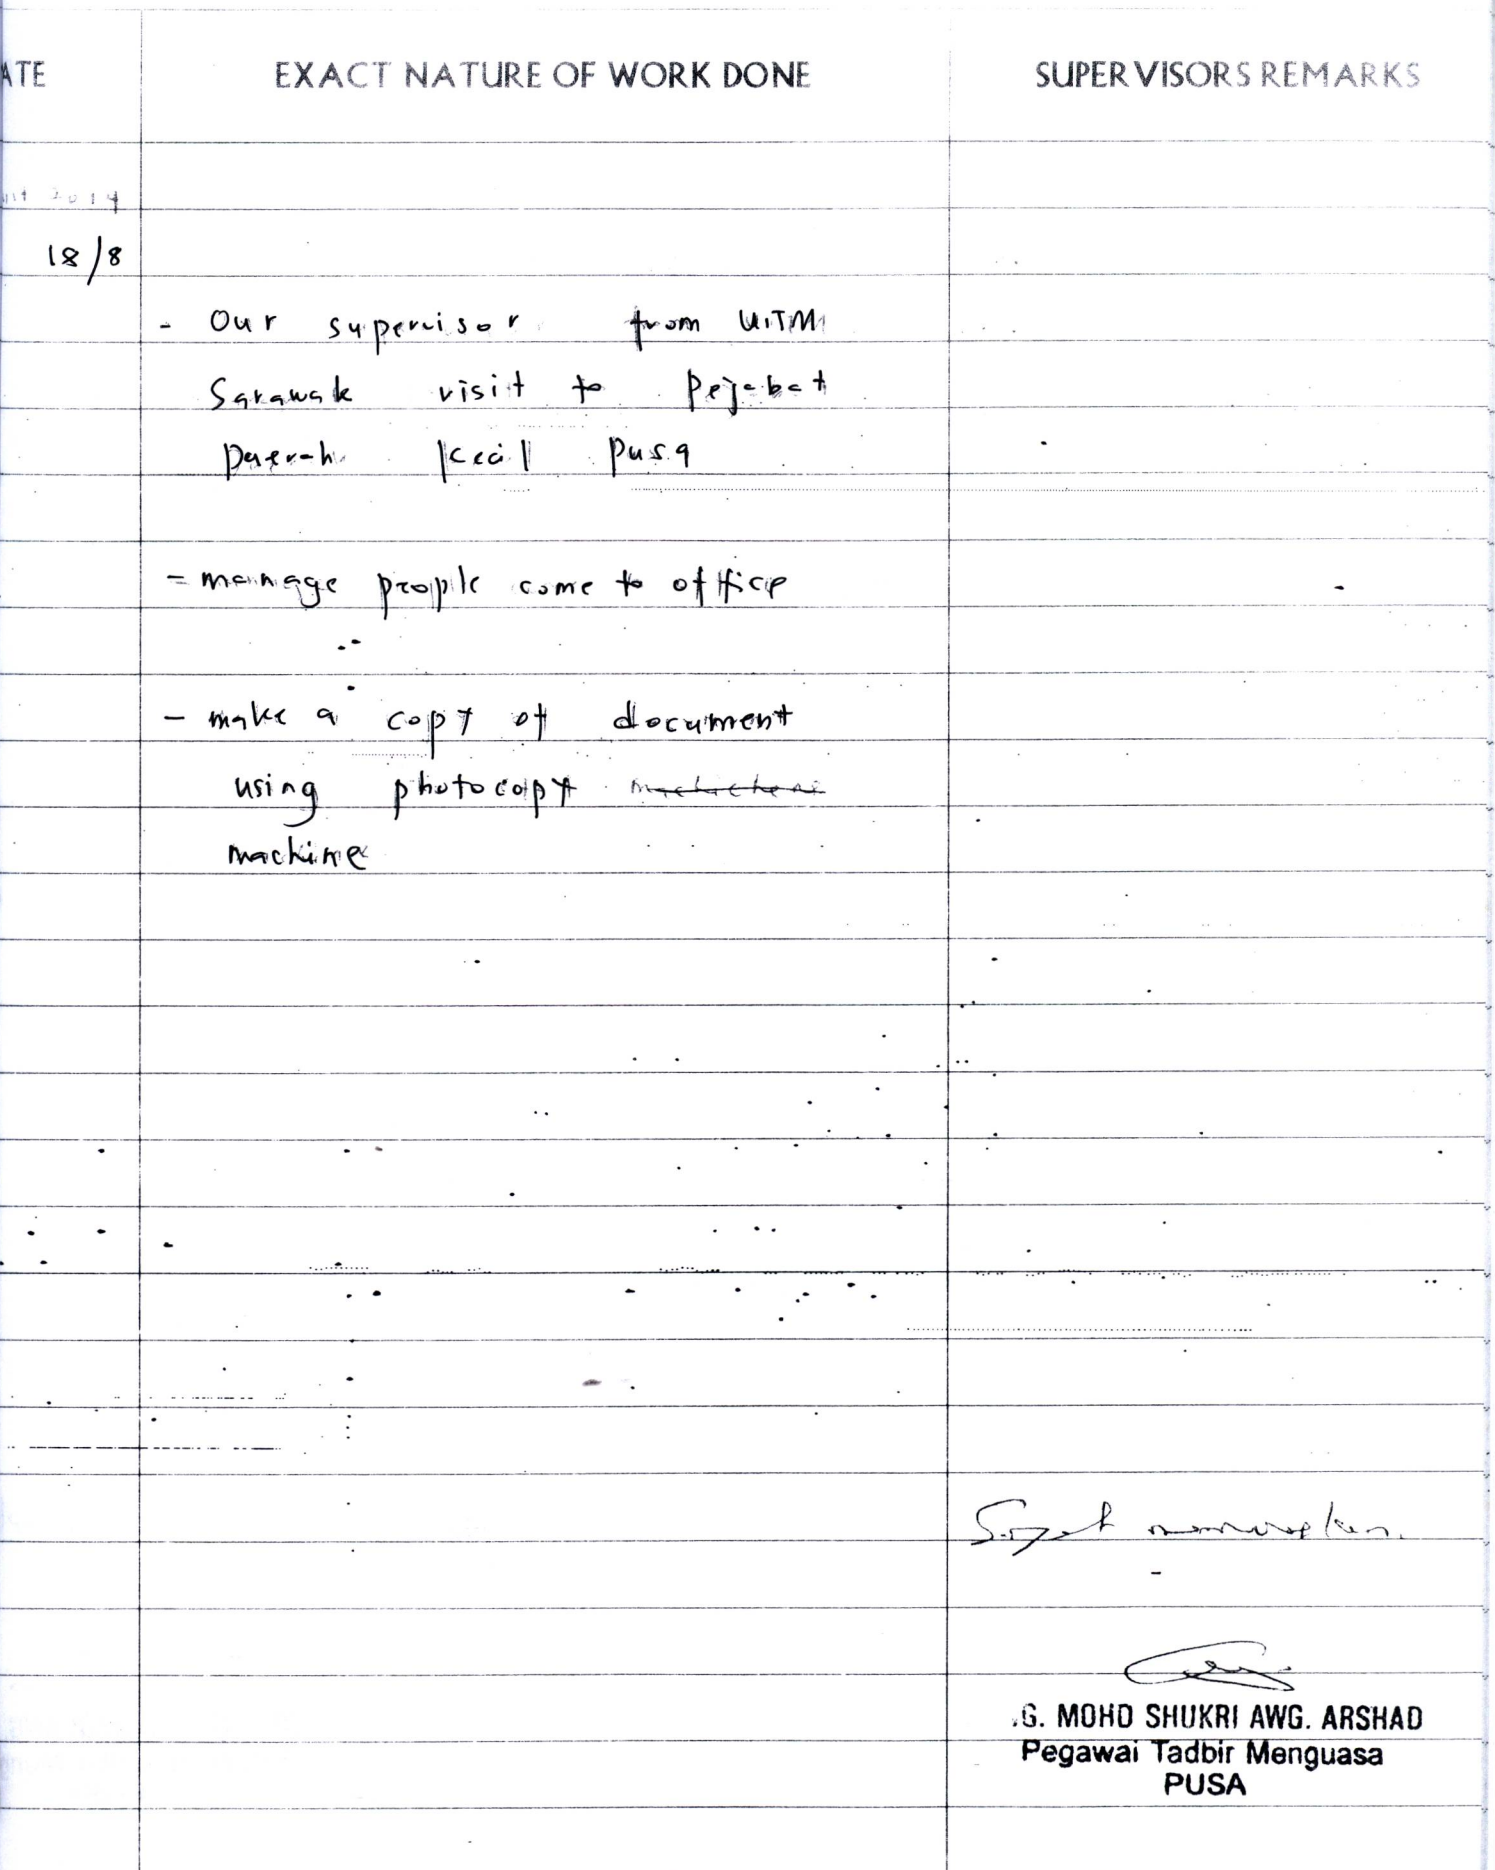 ATE EXACT NATURE OF WORK DONE SUPERVISORS REMARKS
2014
18/8
- Our supervisor from UiTM
Sarawak visit to Pejabat
Daerah Kecil Pusa
- manage people come to office
- make a copy of document
using photocopy
machine
.G. MOHD SHUKRI AWG. ARSHAD
Pegawai Tadbir Menguasa
PUSA